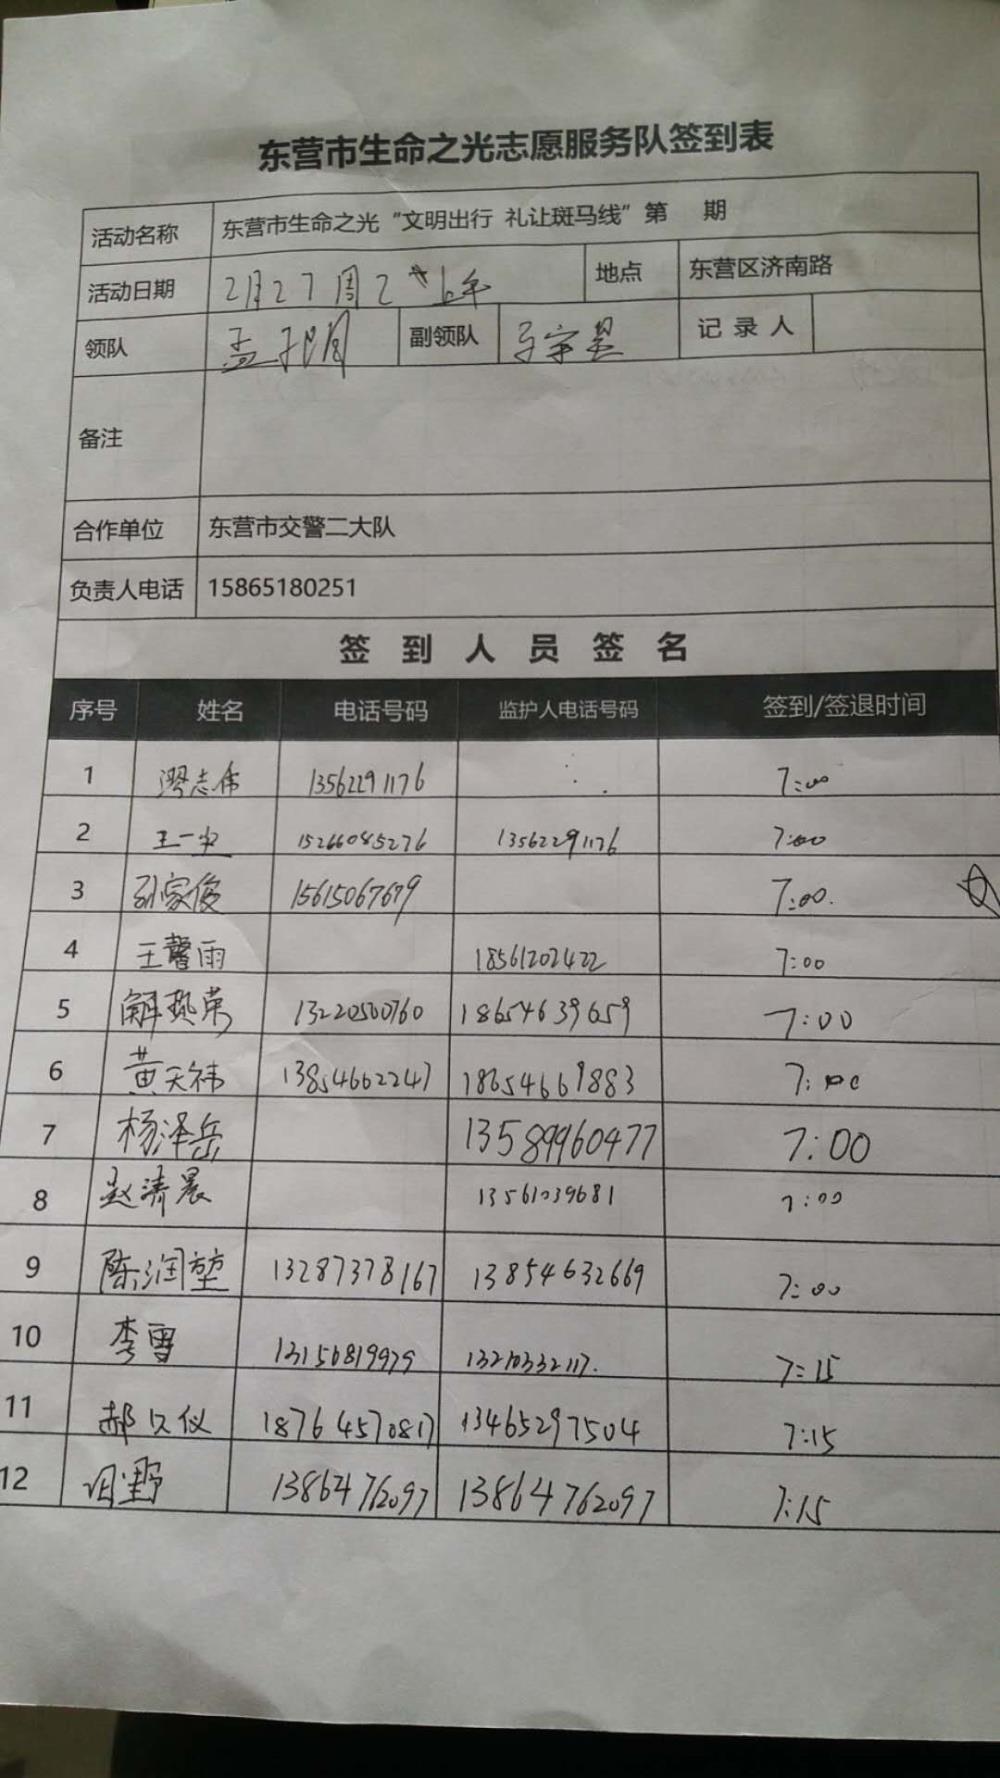 东营市生命之光志愿服务队签到表
活动名称 东营市生命之光“文明出行 礼让斑马线”第 期
活动日期 2月27周2 上午 地点 东营区济南路
领队 副领队 记录人
备注
合作单位 东营市交警二大队
负责人电话 15865180251
签到人员签名
序号 姓名 电话号码 监护人电话号码 签到/签退时间
1 志伟 13562291176 7:00
2 王一 15266085276 13562291176 7:00
3 孙家俊 15615067679 7:00.
4 王馨雨 18561202422 7:00
5 解 荣 13220500760 18654639659 7:00
6 黄天祎 13854662247 18654669883 7:00
7 杨泽岳 13589960477 7:00
8 赵清晨 13561039681 7:00
9 陈润堃 13287378167 13854632669 7:00
10 李雪 13156819979 13210332117. 7:15
11 郝 仪 18764570817 13465297504 7:15
12 野 13864762097 13864762097 7:15